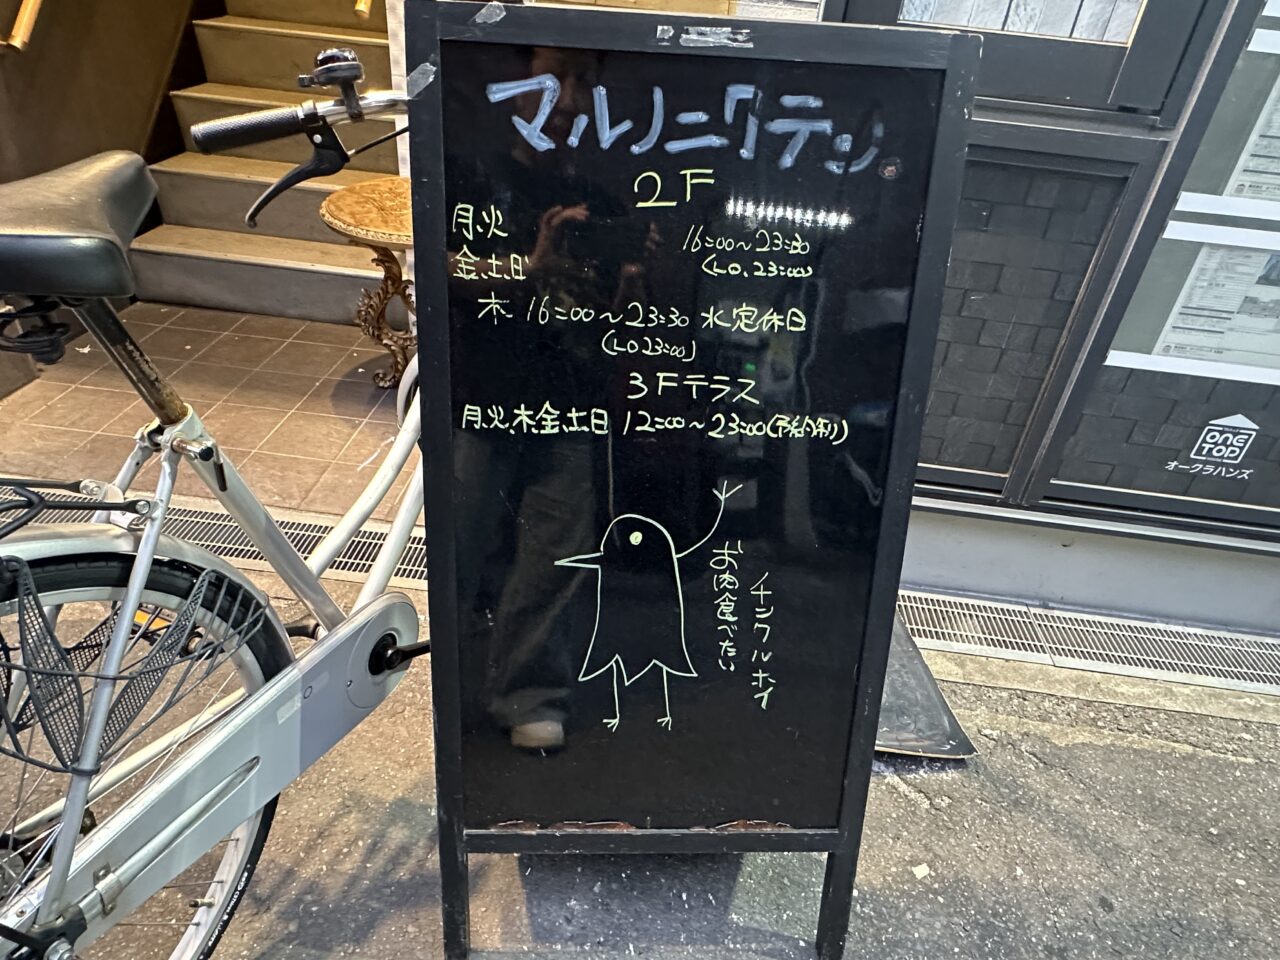 マルノニクテン。
2F
月、火
金、土、日
16:00～23:30
(LO.23:00)
木 16:00～23:30 水定休日
(LO 23:00)
3Fテラス
月、火、木、金、土、日 12:00～23:00(予約制)
チンクルホイ
お肉食べたい
ONE TOP
オークラハンズ